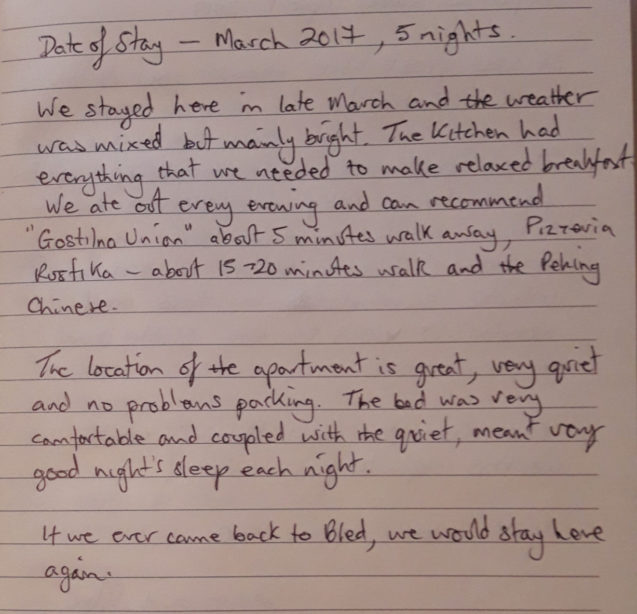 Date of Stay - March 2017, 5 nights.
We stayed here in late March and the weather
was mixed but mainly bright. The Kitchen had
everything that we needed to make relaxed breakfast
We ate out every evening and can recommend
"Gostilna Union" about 5 minutes walk away, Pizzeria
Rustika - about 15-20 minutes walk and the Peking
Chinese.
The location of the apartment is great, very quiet
and no problems parking. The bed was very
comfortable and coupled with the quiet, meant very
good night's sleep each night.
If we ever came back to Bled, we would stay here
again.